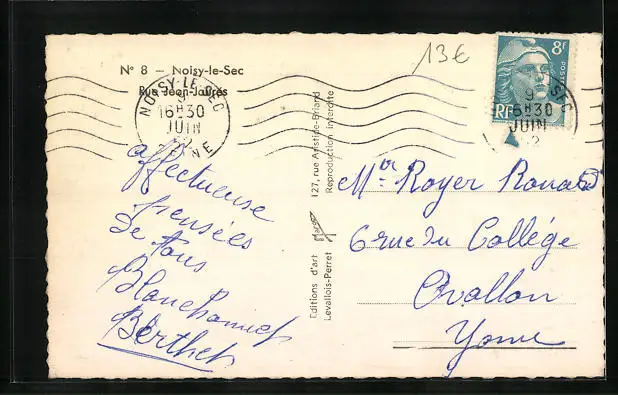 13€
N° 8 – Noisy-le-Sec
Rue Jean-Jaurès
NOISY-LE-SEC
9
16H30
JUIN
SEINE
8F
POSTES
RF
SEC
9
16H30
JUIN
affectueuse
pensées
de tous
Berthet
Editions d'art
Levallois-Perret
127, rue Aristide-Briand
Reproduction interdite
Mr Royer Ronald
6 rue du Collège
Avallon
Yonne